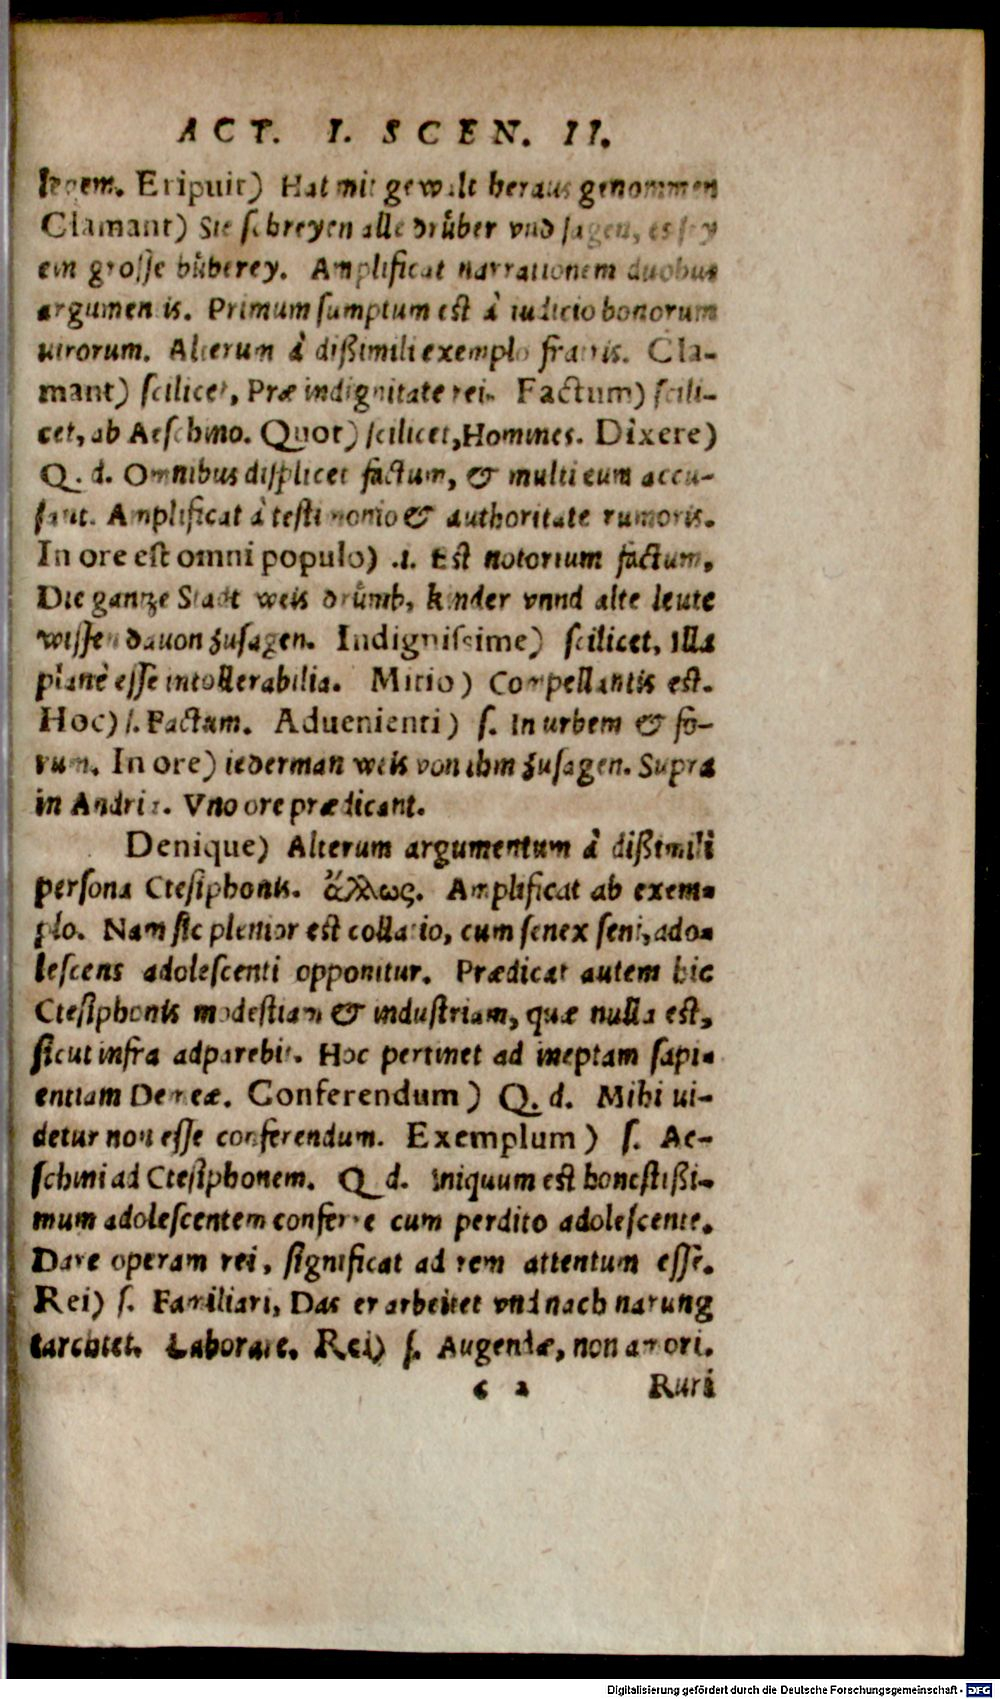 ACT. I. SCEN. II.
legem. Eripuit) Hat mit gewalt heraus genommen
Clamant) Sie schreyen alle drůber vnd sagen, es sey
ein grosse bůberey. Amplificat narrationem duobus
argumentis. Primum sumptum est à iudicio bonorum
uirorum. Alterum à dißimili exemplo fratris. Cla-
mant) scilicet, Præ indignitate rei. Factum) scili-
cet, ab Aeschino. Quot) scilicet, Homines. Dixere)
Q. d. Omnibus displicet factum, & multi eum accu-
sant. Amplificat à testimonio & authoritate rumoris.
In ore est omni populo) .i. Est notorium factum,
Die gantze Stadt weis drůmb, kinder vnnd alte leute
wissen dauon zusagen. Indignissime) scilicet, Illa
planè esse intollerabilia. Mitio) Compellantis est.
Hoc) s. Factum. Aduenienti) s. In urbem & fo-
rum. In ore) iederman weis von ihm zusagen. Supra
in Andria. Vno ore prædicant.
Denique) Alterum argumentum à dißimili
persona Ctesiphontis. ἄλλως. Amplificat ab exem-
plo. Nam sic plenior est collatio, cum senex seni, ado-
lescens adolescenti opponitur. Prædicat autem hic
Ctesiphontis modestiam & industriam, quæ nulla est,
sicut infra adparebit. Hoc pertinet ad ineptam sapi-
entiam Demeæ. Conferendum) Q. d. Mihi ui-
detur non esse conferendum. Exemplum) s. Ae-
schini ad Ctesiphonem. Q d. Iniquum est honestißi-
mum adolescentem conferre cum perdito adolescente.
Dare operam rei, significat ad rem attentum esse.
Rei) s. Familiari, Das er arbeitet vnd nach narung
tarchtet. Laborare. Rei) s. Augendæ, non amori.
c 2 Ruri
Digitalisierung gefördert durch die Deutsche Forschungsgemeinschaft - DFG